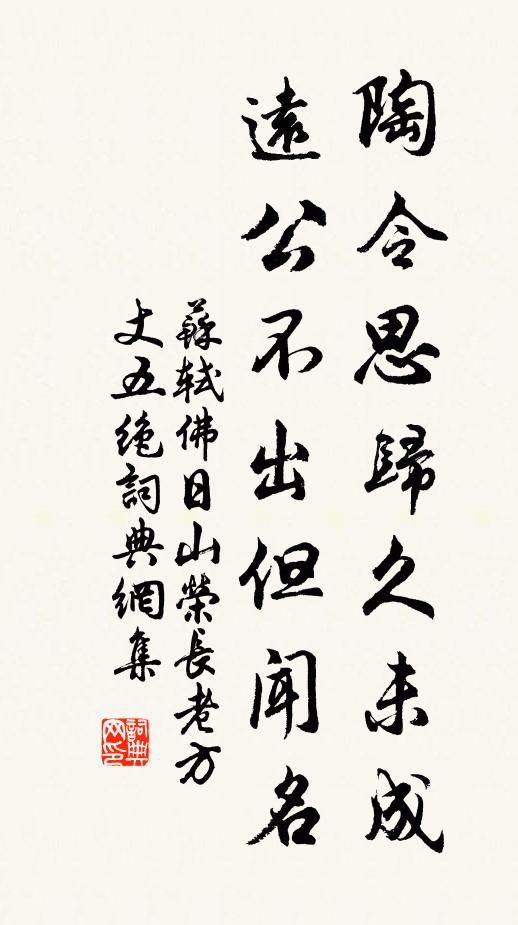 陶令思歸久未成
遠公不出但聞名
蘇軾佛日山榮長老方
丈五絶詞典網集
詞典
网印